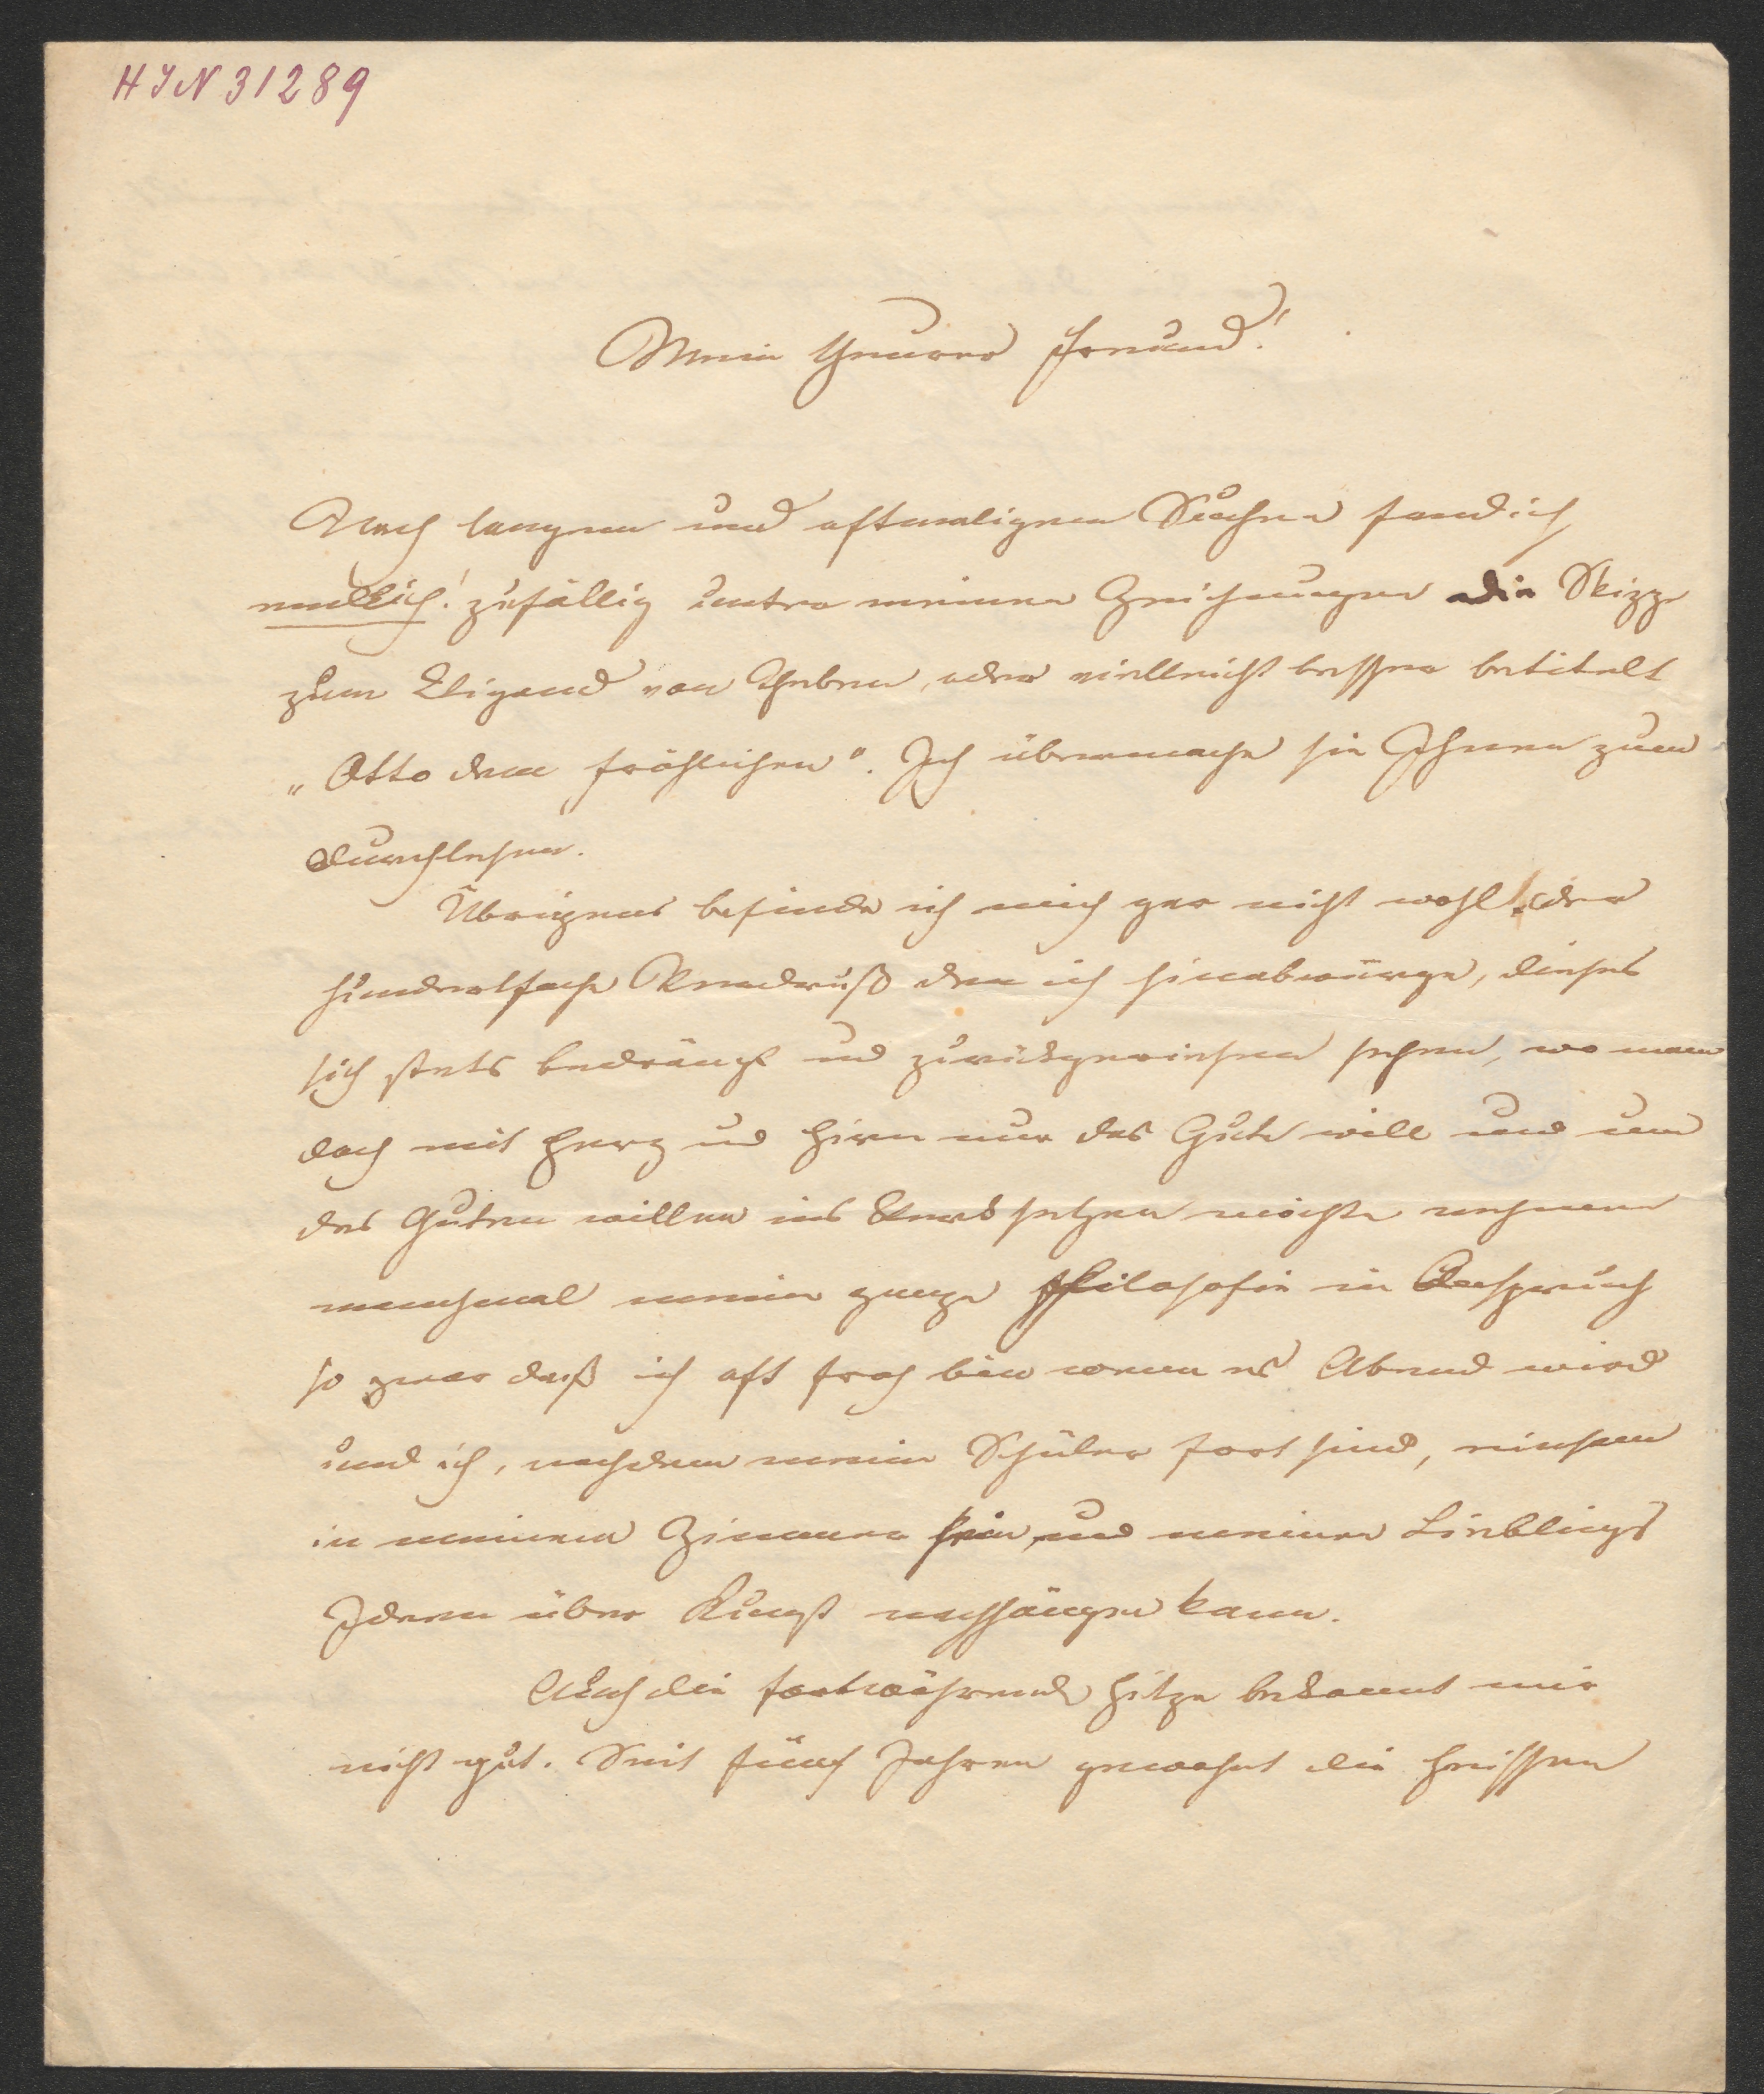 HIN 31289
Mein theurer Freund!
Nach langem und oftmaligem Suchen fand ich
endlich! zufällig unter meinen Zeichnungen die Skizze
zum Wigand von Theben, oder vielleicht besser betitelt
„Otto dem fröhlichen". Ich übermache sie Ihnen zum
durchlesen.
Übrigens befinde ich mich gar nicht wohl, der
hundertfache Verdruß den ich hinabwürge, dieses
sich stets bedrängt und zurückgewiesen sehen, wo man
doch mit Herz und Hirn nur das Gute will und um
des Guten willen ins Werk setzen möchte nehmen
manchmal meine ganze Philosofie in Anspruch
so zwar daß ich oft froh bin wenn es Abend wird
und ich, nachdem meine Schüler fort sind, einsam
in meinem Zimmer sein und meinen Lieblings
Ideen über Kunst nachhängen kann.
Auch die fortwährende Hitze bekommt mir
nicht gut. Seit fünf Jahren gewohnt die heissen